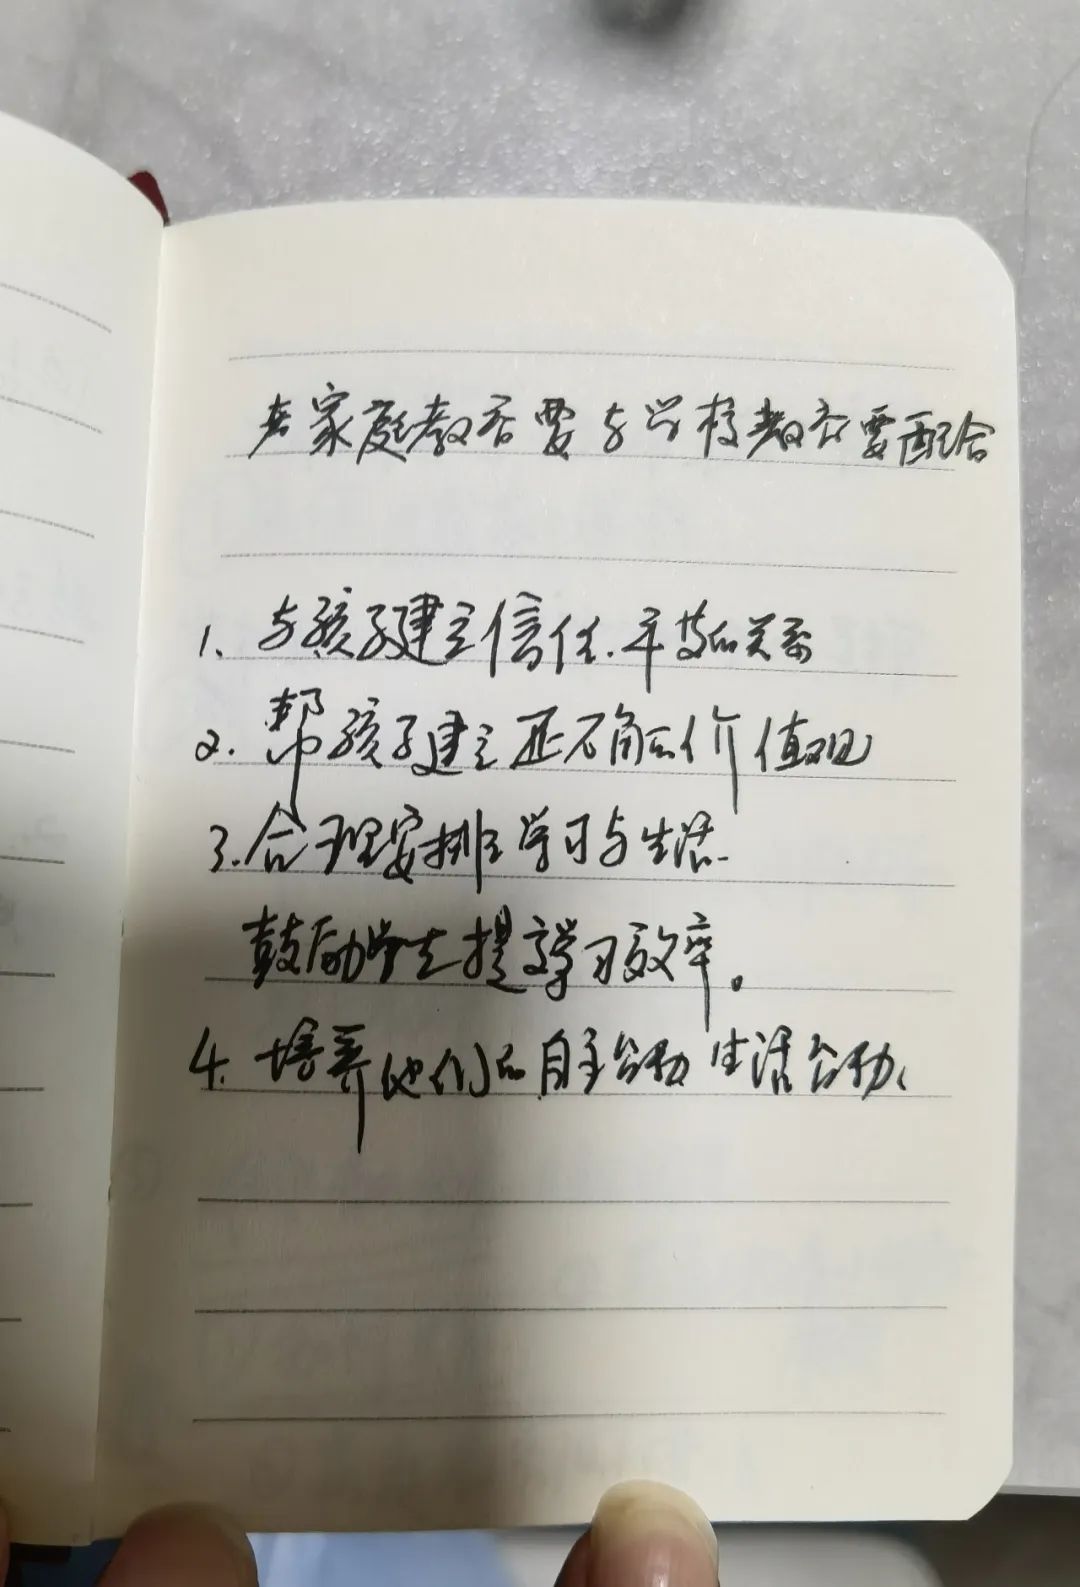 家庭教育要与学校教育要配合
1、与孩子建立信任、平等的关系
2、帮孩子建立正确的价值观
3、合理安排学习与生活
鼓励学生提高学习效率。
4、培养他们的自主 生活